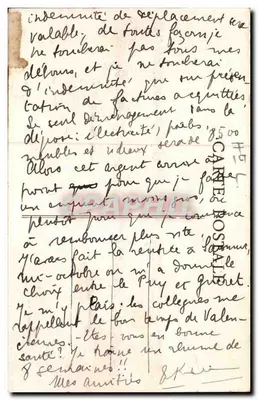 indemnité de déplacement
valable, de toutes façons je
ne toucherai pas tous mes
débours, et je ne toucherai
d'indemnités que sur présen-
tation de factures acquittées
Le seul déménagement sans le
dépôt : électricité, poêles,
meubles et rideaux serait 8500
Alors cet argent arrive à
point pour que je
un plutôt pour que je commence
à rembourser plus vite
J'avais fait la rentrée à
mi-octobre on m'a donné le
choix entre le Puy et Guéret.
Je m'y plais : les collègues me
rappellent le bon temps de Valen-
ciennes. - Etes-vous en bonne
santé? Je traîne un rhume de
8 semaines!!
Mes amitiés
CARTE POSTALE